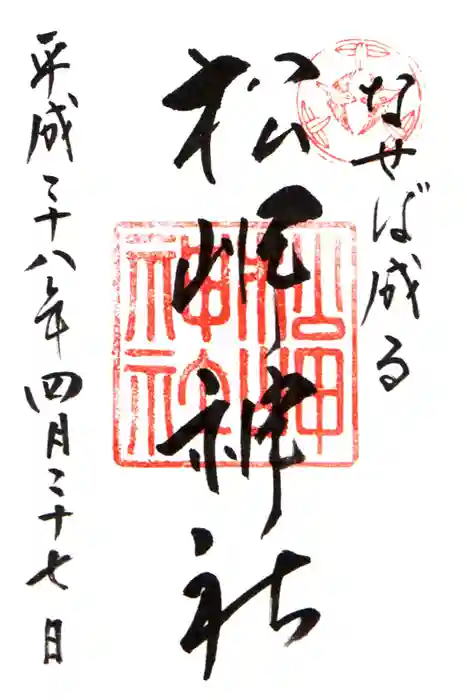 なせば成る
松岬神社
松岬
神社
平成二十八年四月二十七日